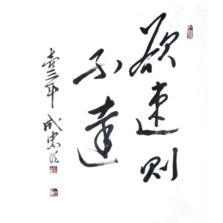 欲速则
不達
壹三年
成忠臣